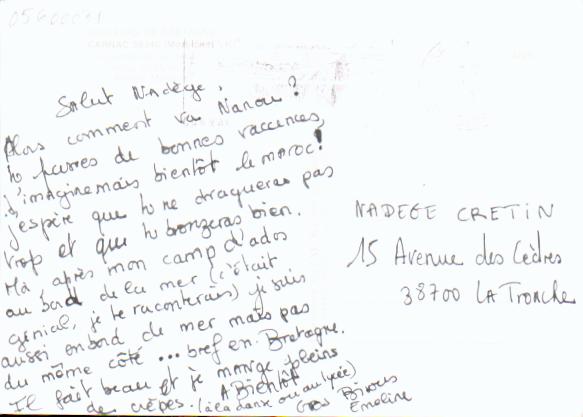 05600091
CARNAC
Salut Nadège,
Alors comment va Nanou?
tu passes de bonnes vaccances,
j'imagine mais bientôt le maroc!
j'espère que tu ne dragueras pas
trop et que tu bronzeras bien.
Là, après mon camp d'ados
au bord de la mer (c'était
génial, je te raconterais) je suis
aussi en bord de mer mais pas
du même côté... bref en Bretagne.
Il fait beau et je mange pleins
de crêpes. A Bientôt
(à la danse ou au lycée)
Gros Bisous
Emeline
NADEGE CRETIN
15 Avenue des Cèdres
38700 LA Tronche